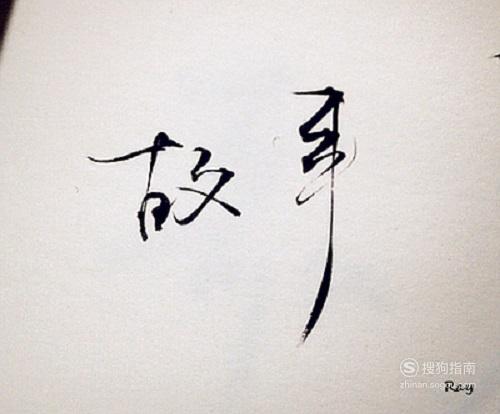 故事
搜狗指南
zhinan.sogou.com
Ray